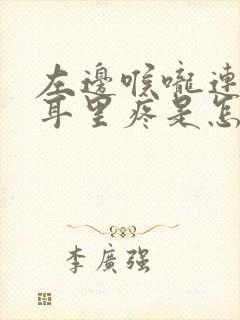 左邊喉嚨連
耳里疼是怎
李廣强